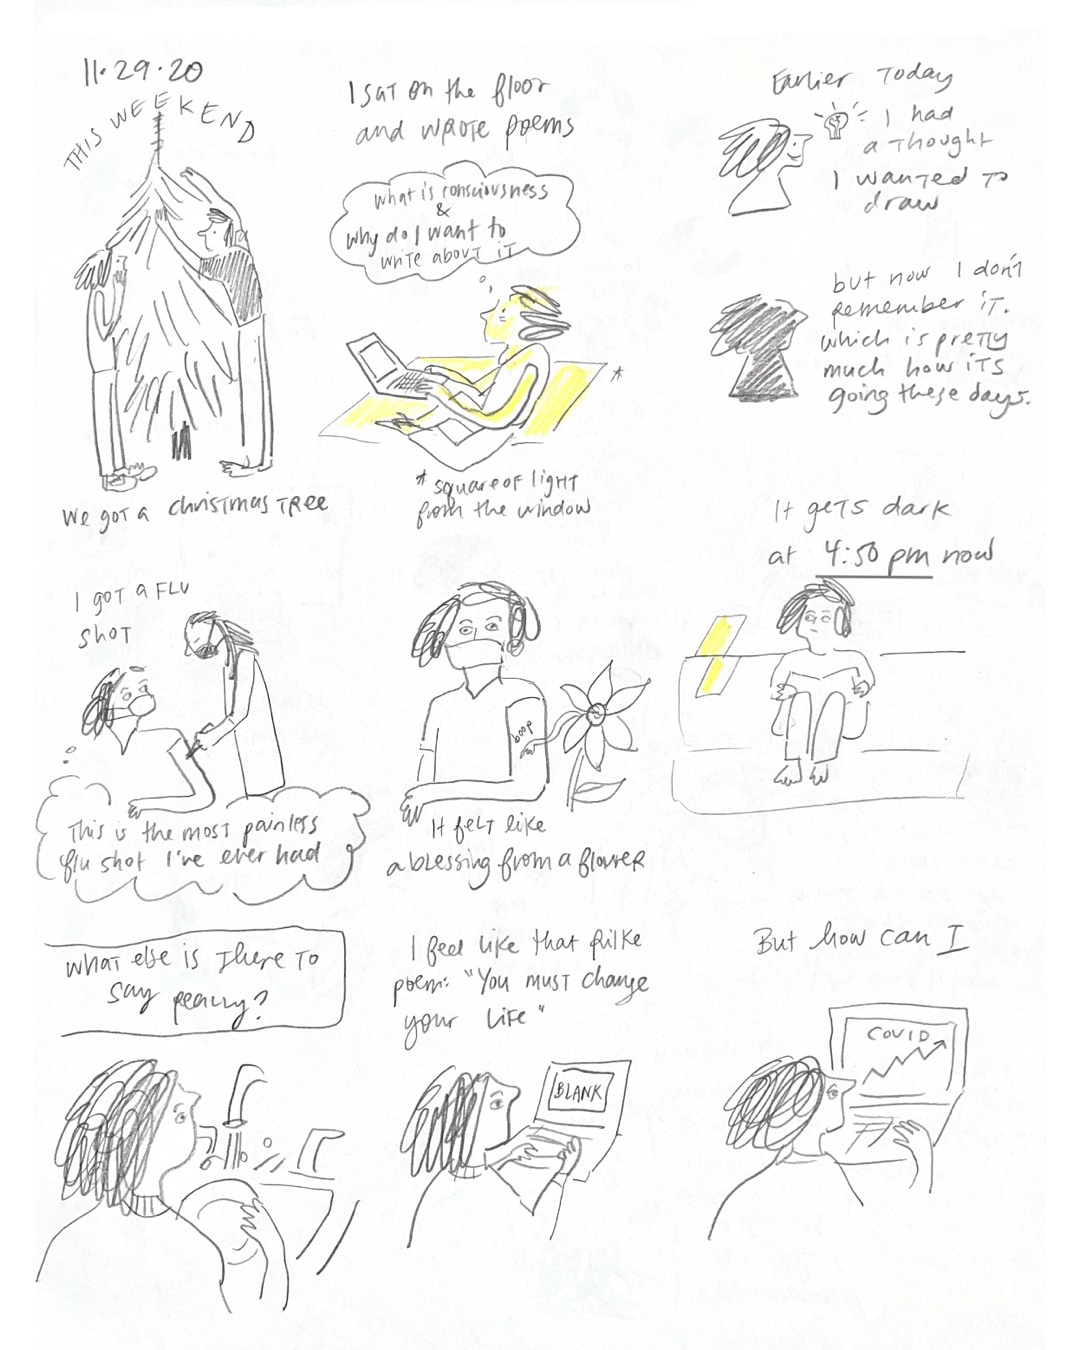 11·29·20
THIS WEEKEND
We got a christmas TREE
I sat on the floor
and wrote poems
what is consciousness
&
why do I want to
write about it
*
* square of light
from the window
Earlier Today
I had
a Thought
I wanted to
draw
but now I don't
remember it.
which is pretty
much how its
going these days.
I got a FLU
SHOT
This is the most painless
flu shot I've ever had
boop
It felt like
a blessing from a flower
It gets dark
at 4:50 pm now
What else is there to
say really?
I feel like that rilke
poem: "You must change
your life"
BLANK
But how can I
COVID